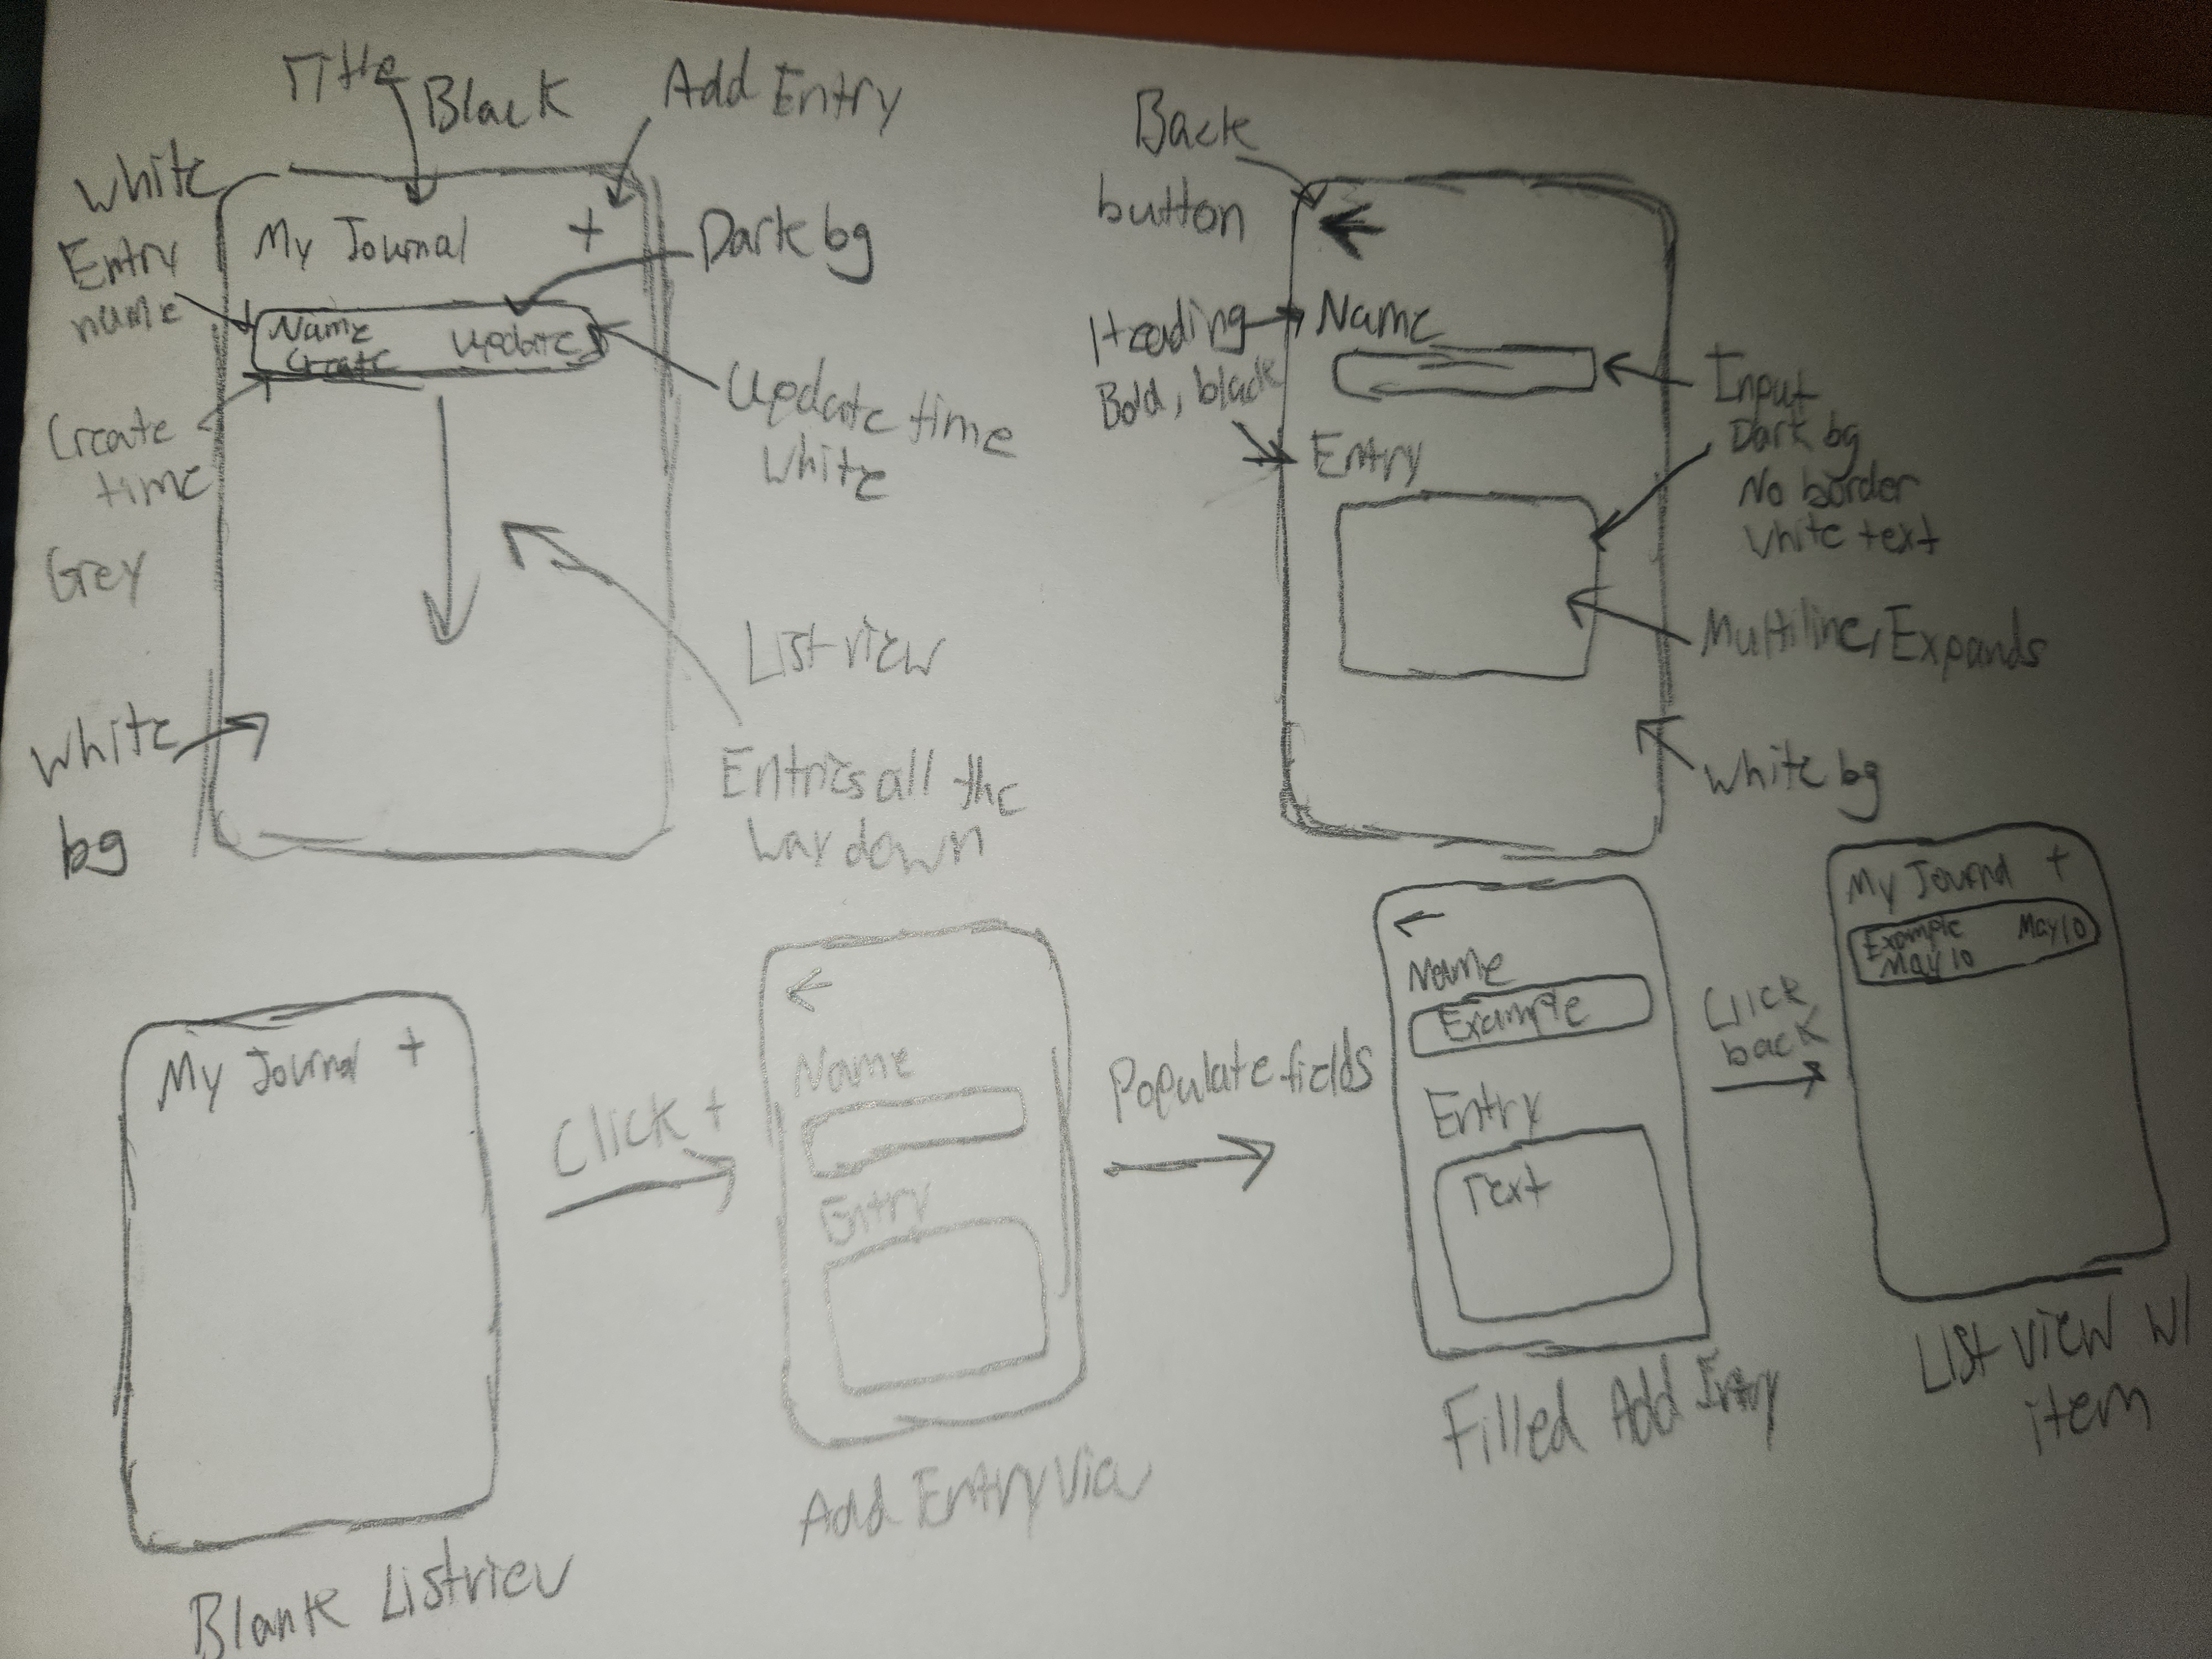 Title
Black
Add Entry
White
Entry
name
My Journal +
Dark bg
Name
Create
Update
Create
time
Grey
Update time
White
List view
Entries all the
way down
White
bg
Back
button
Heading
Bold, black
Name
Entry
Input
Dark bg
No border
White text
Multiline, Expands
White bg
My Journal +
Blank Listview
Click +
Name
Entry
Add Entry
Populate fields
Name
Example
Entry
Text
Filled Add Entry
Click
back
My Journal +
Example
May 10
May 10
List view w/
item